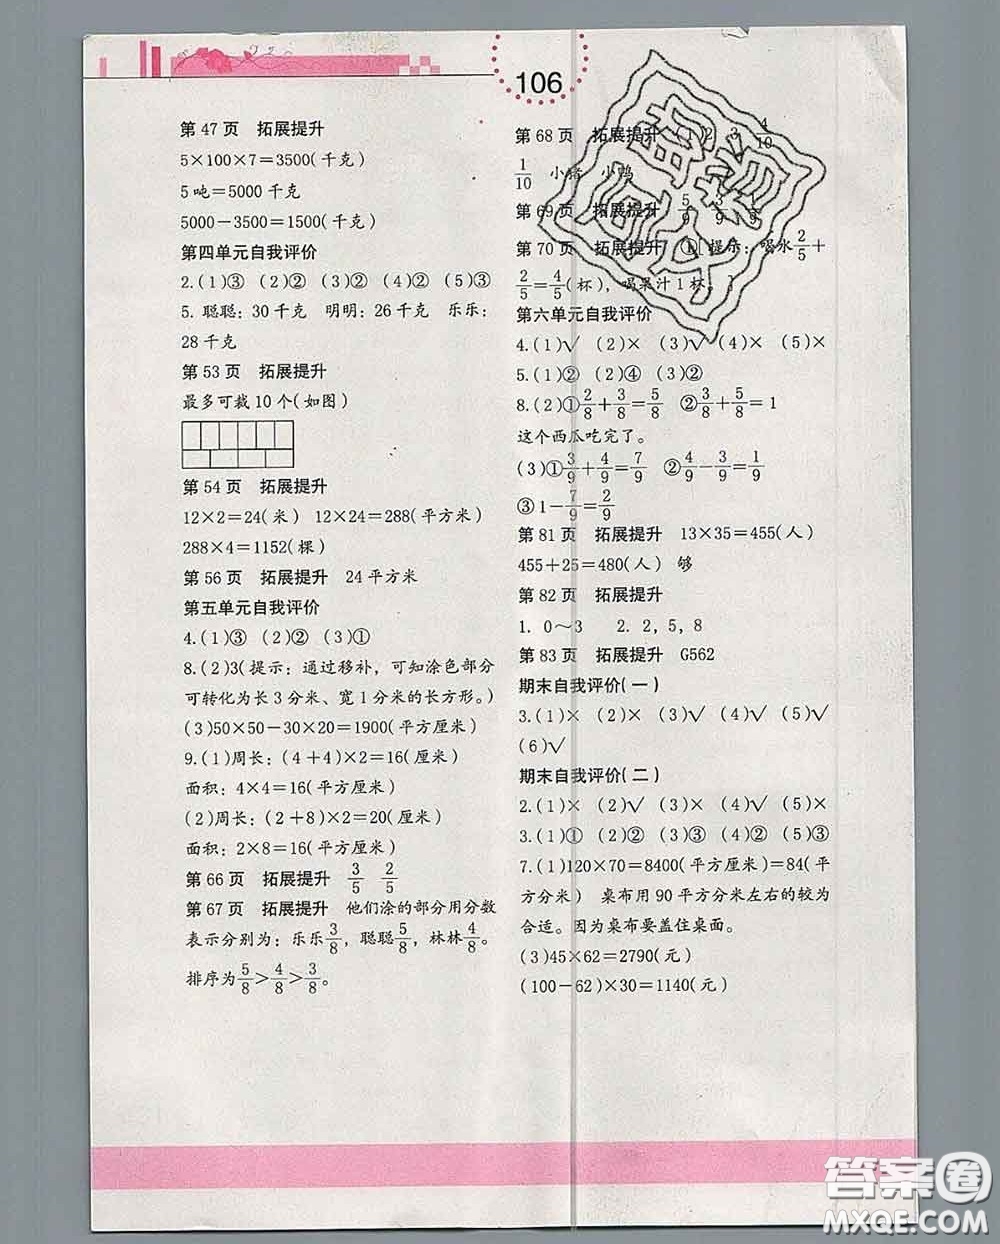 106
第47页 拓展提升
5×100×7=3500(千克)
5吨=5000千克
5000-3500=1500(千克)
第四单元自我评价
2.(1)③ (2)② (3)② (4)② (5)③
5. 聪聪:30千克 明明:26千克 乐乐:
28千克
第53页 拓展提升
最多可裁10个(如图)
第54页 拓展提升
12×2=24(米) 12×24=288(平方米)
288×4=1152(棵)
第56页 拓展提升 24平方米
第五单元自我评价
4.(1)③ (2)② (3)①
8.(2)3(提示:通过移补,可知涂色部分
可转化为长3分米、宽1分米的长方形。)
(3)50×50-30×20=1900(平方厘米)
9.(1)周长:(4+4)×2=16(厘米)
面积:4×4=16(平方厘米)
(2)周长:(2+8)×2=20(厘米)
面积:2×8=16(平方厘米)
第66页 拓展提升 3/5 2/5
第67页 拓展提升 他们涂的部分用分数
表示分别为:乐乐3/8,聪聪5/8,林林4/8。
排序为5/8>4/8>3/8。
第68页 拓展提升 (1)2 3 4/10
1/10 小猪 小鸭
第69页 拓展提升 5/9 3/9 1/9
第70页 拓展提升 ① 提示:喝水2/5+
2/5=4/5(杯),喝果汁1杯。
第六单元自我评价
4.(1)√ (2)× (3)√ (4)× (5)×
5.(1)② (2)④ (3)②
8.(2)①2/8+3/8=5/8 ②3/8+5/8=1
这个西瓜吃完了。
(3)①3/9+4/9=7/9 ②4/9-3/9=1/9
③1-7/9=2/9
第81页 拓展提升 13×35=455(人)
455+25=480(人) 够
第82页 拓展提升
1. 0~3 2. 2,5,8
第83页 拓展提升 G562
期末自我评价(一)
3.(1)× (2)× (3)√ (4)√ (5)√
(6)√
期末自我评价(二)
2.(1)× (2)√ (3)× (4)√ (5)×
3.(1)① (2)② (3)③ (4)② (5)③
7.(1)120×70=8400(平方厘米)=84(平
方分米) 桌布用90平方分米左右的较为
合适。因为桌布要盖住桌面。
(3)45×62=2790(元)
(100-62)×30=1140(元)
答案圈
MXQE.COM